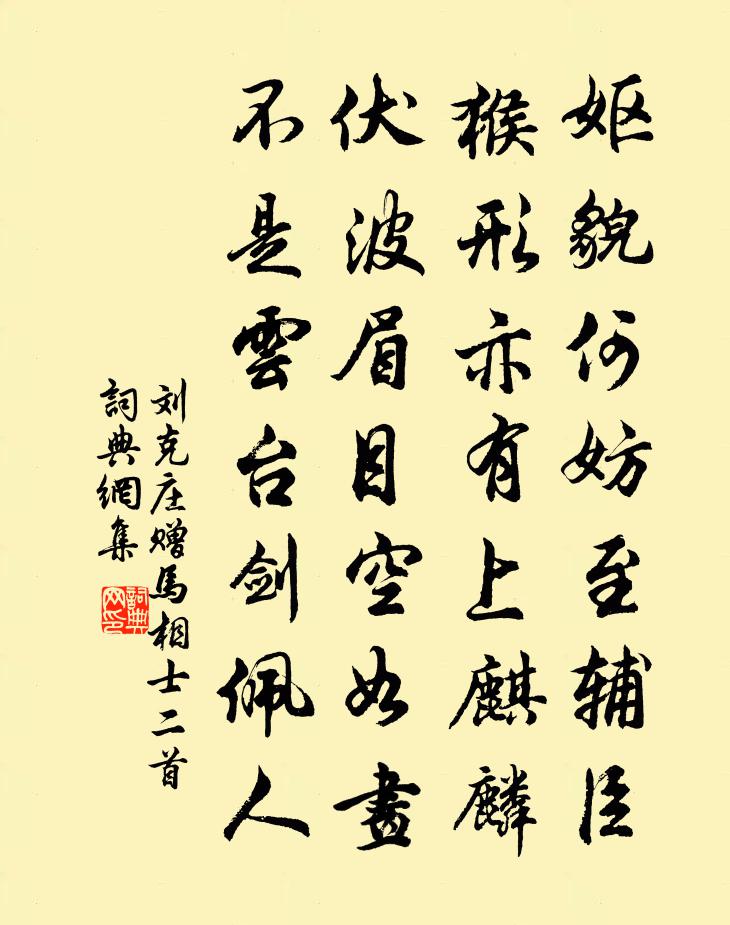 妪貌何妨至辅臣
猴形亦有上麒麟
伏波眉目空如畫
不是雲台劍佩人
刘克庄赠馬相士二首
詞典網集
詞典网印